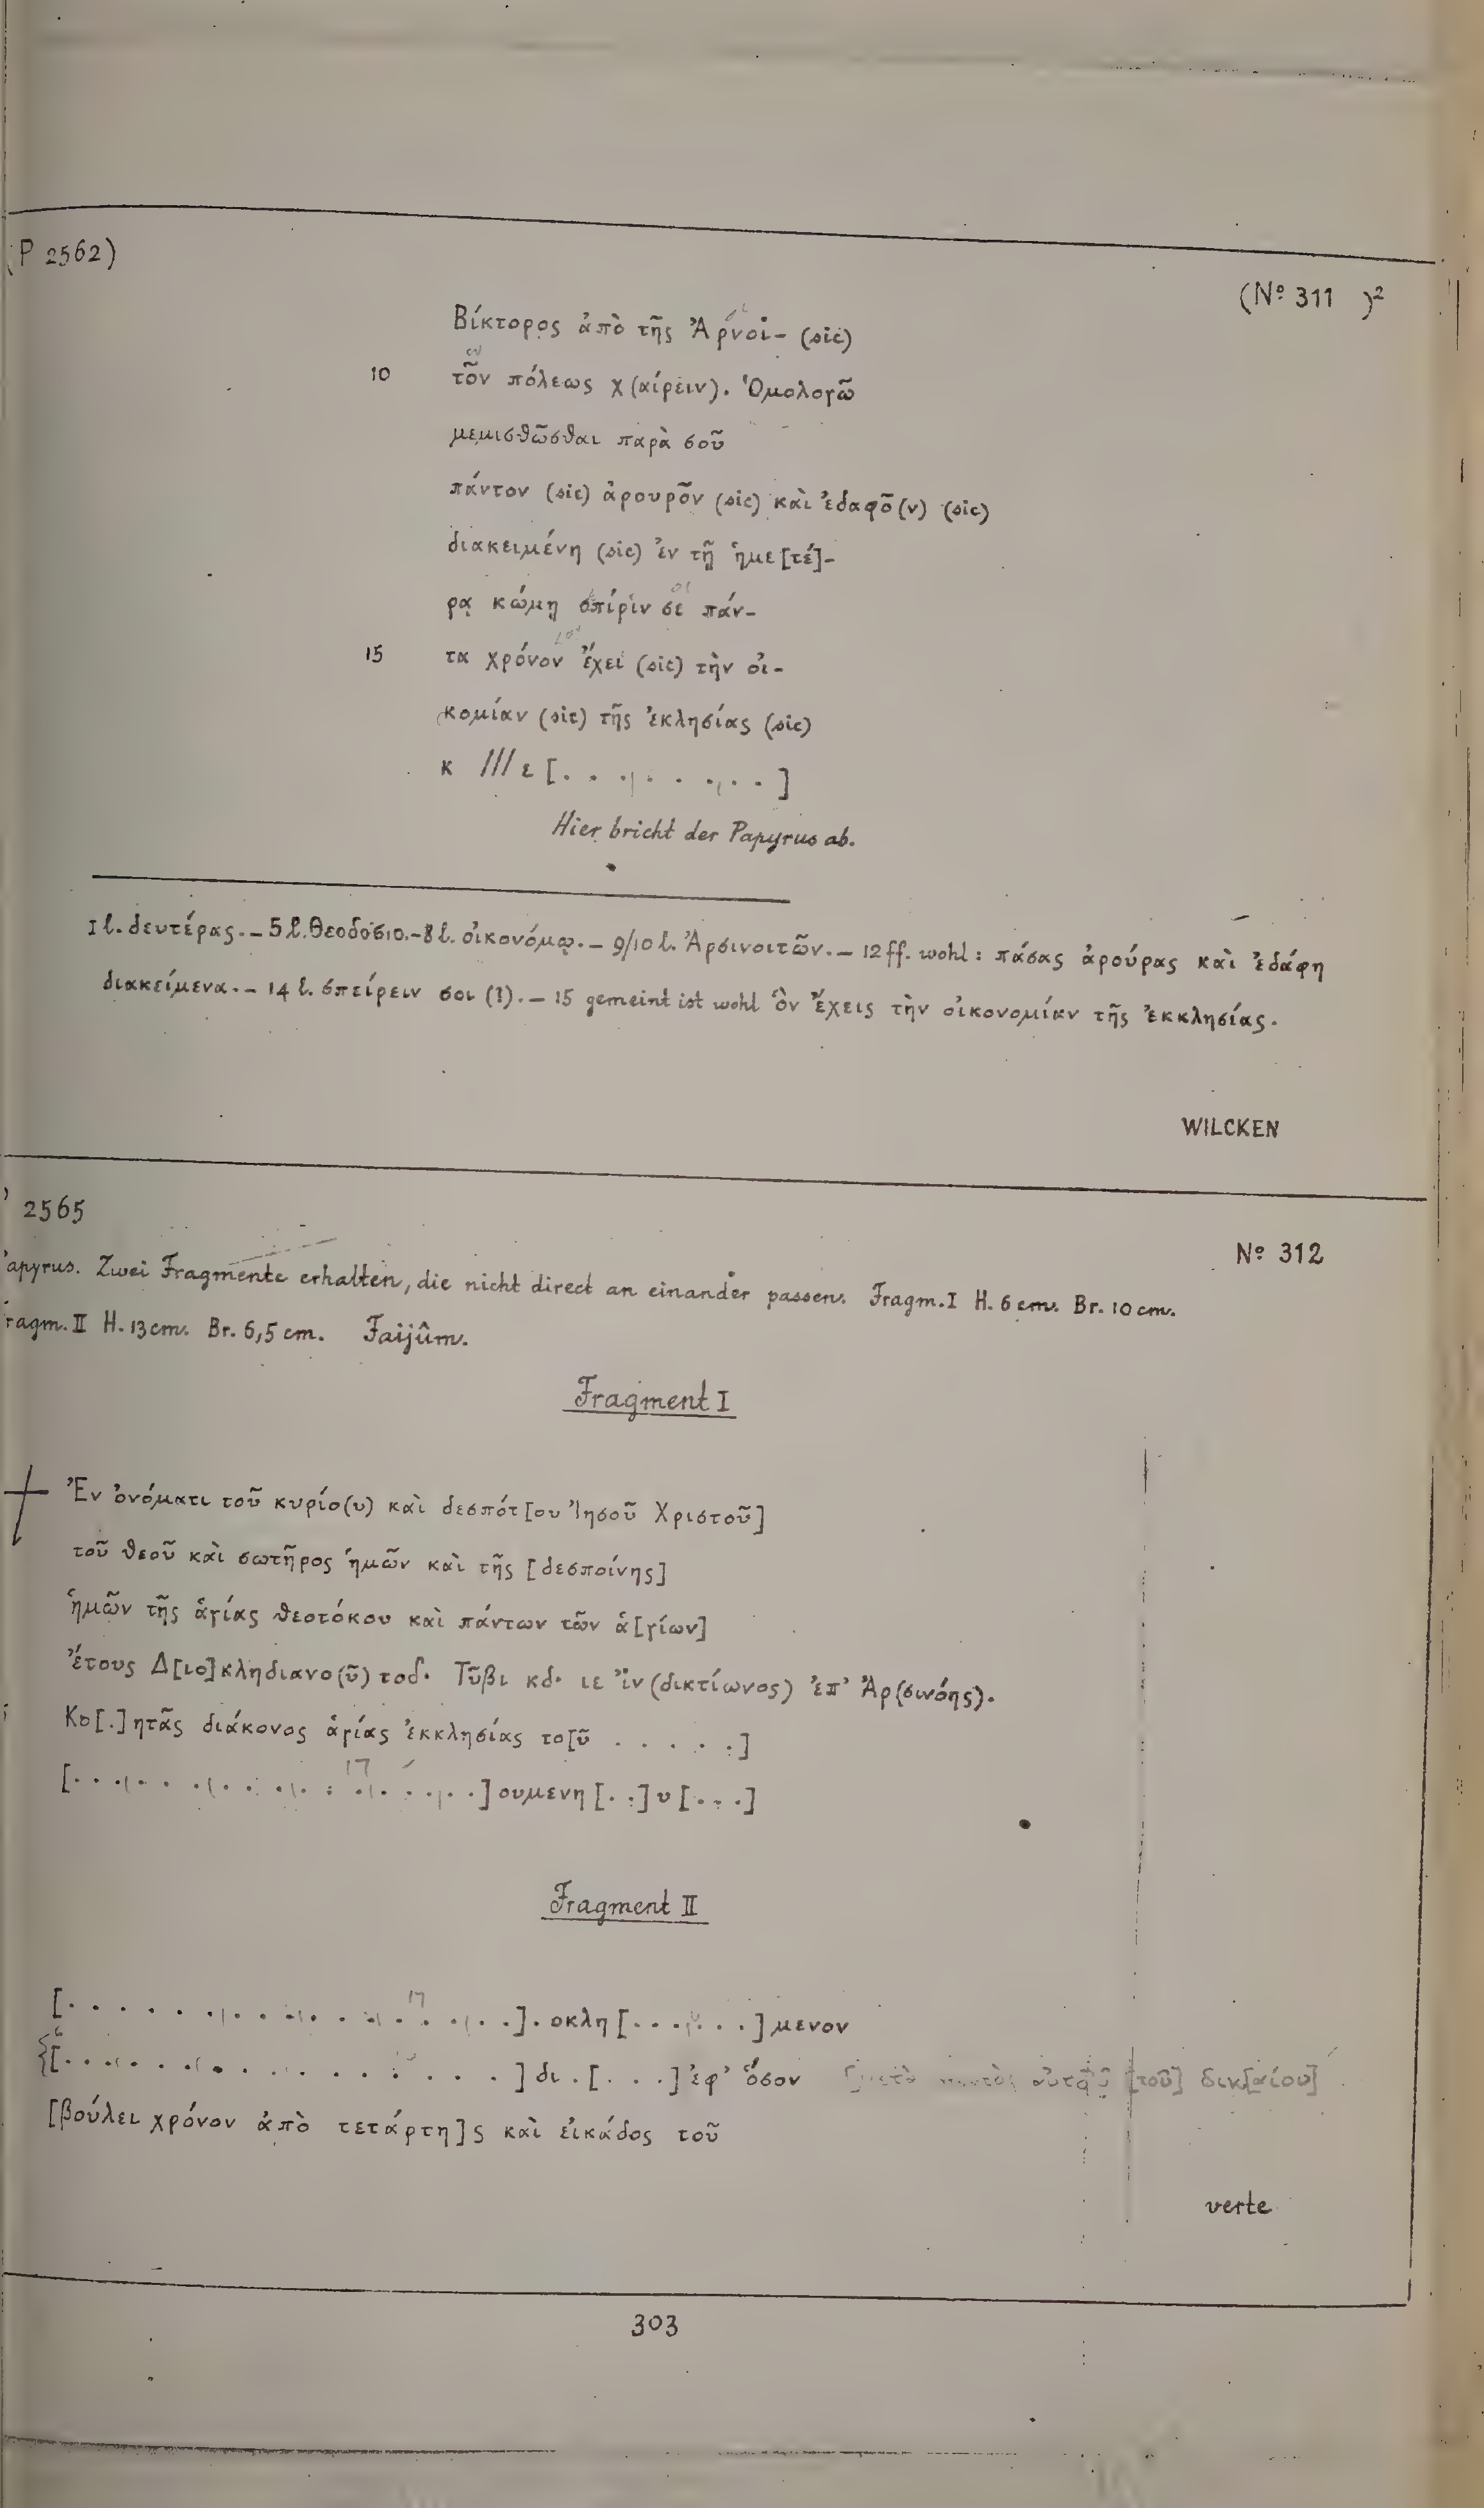 (P 2562)
(No 311 )²
Βίκτορος ἀπὸ τῆς Ἀρνοϊ- (sic)
10 τõν πόλεως χ(αίρειν). Ὁμολογῶ
μεμισθῶσθαι παρὰ σοῦ
πάντον (sic) ἀρουρõν (sic) καὶ ἐδαφõ(ν) (sic)
διακειμένη (sic) ἐν τῇ ἡμε[τέ]-
ρᾳ κώμῃ σπίριν σε πάν-
15 τα χρόνον ἔχει (sic) τὴν οἰ-
κομίαν (sic) τῆς ἐκλησίας (sic)
κ /// ε [. . . . . . . . .]
Hier bricht der Papyrus ab.
1 l. δευτέρας. – 5 l. Θεοδόσιο. – 8 l. οἰκονόμῳ. – 9/10 l. Ἀρσινοιτῶν. – 12 ff. wohl: πάσας ἀρούρας καὶ ἐδάφη
διακείμενα. – 14 l. σπείρειν σοι (?). – 15 gemeint ist wohl ὃν ἔχεις τὴν οἰκονομίαν τῆς ἐκκλησίας.
WILCKEN
2565
No 312
apyrus. Zwei Fragmente erhalten, die nicht direct an einander passen. Fragm. I H. 6 cm. Br. 10 cm.
ragm. II H. 13 cm. Br. 6,5 cm. Faijûm.
Fragment I
Ἐν ὀνόματι τοῦ κυρίο(υ) καὶ δεσπότ[ου Ἰησοῦ Χριστοῦ]
τοῦ θεοῦ καὶ σωτῆρος ἡμῶν καὶ τῆς [δεσποίνης]
ἡμῶν τῆς ἁγίας θεοτόκου καὶ πάντων τῶν ἁ[γίων]
ἔτους Δ[ιο]κληδιανο(ῦ) τοδ. Τῦβι κδ. ιε ἰν(δικτίωνος) ἐπ’ Ἀρ(σινόης).
Κο[.]ητᾶς διάκονος ἁγίας ἐκκλησίας το[ῦ . . . . .]
[. . . . . . . . . . . . . . . . .] ουμενη [. .] υ [. . .]
Fragment II
[. . . . . . . . . . . . . . . . .] . οκλη [. . . . . .] μενον
[. . . . . . . . . . . . . . . . .] δι . [. . .] ἐφ’ ὅσον [τοῦ] δικ[αίου]
[βούλει χρόνον ἀπὸ τετάρτη]ς καὶ εἰκάδος τοῦ
verte
303